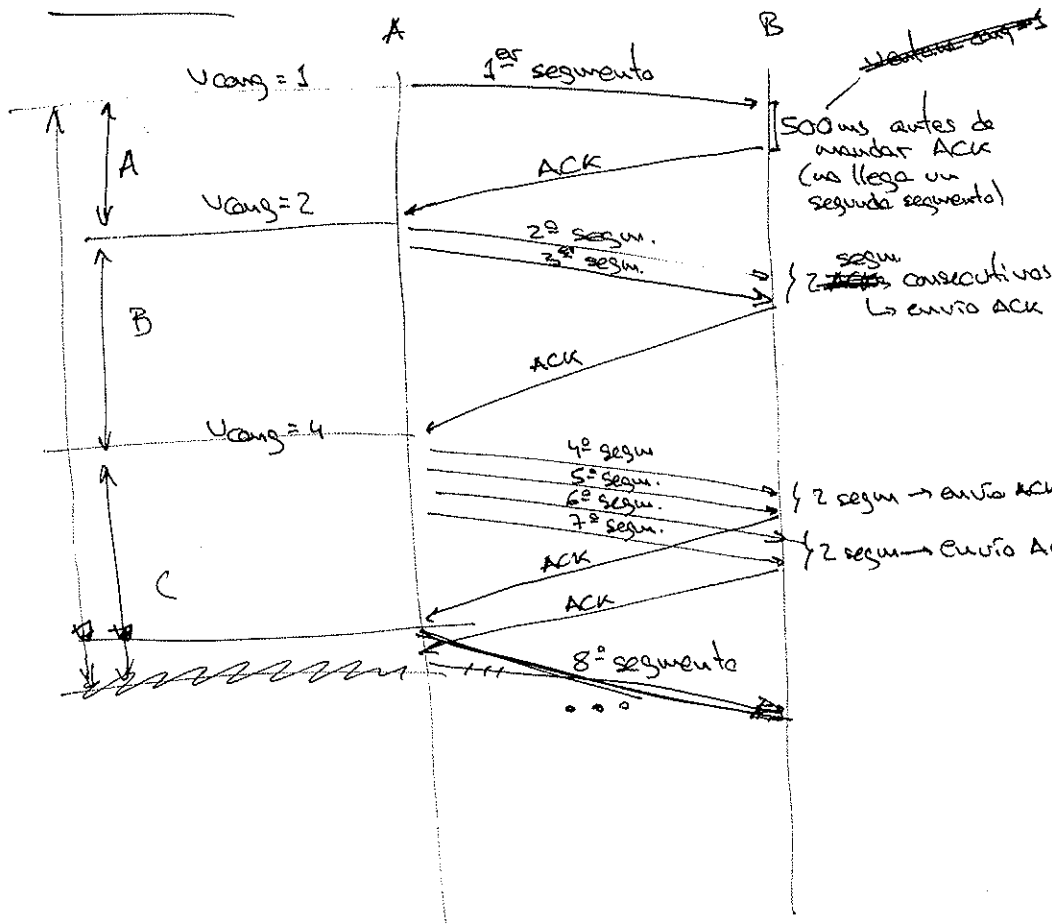 A
B
Vcong = 1
1er segmento
500 ms antes de
mandar ACK
(no llega un
segundo segmento)
A
ACK
Vcong = 2
2º segm.
3er segm.
segm.
2 consecutivos
↳ envío ACK
B
ACK
Vcong = 4
4º segm
5º segm.
6º segm.
7º segm.
2 segm → envío ACK
2 segm → envío AC
C
ACK
ACK
8º segmento
...